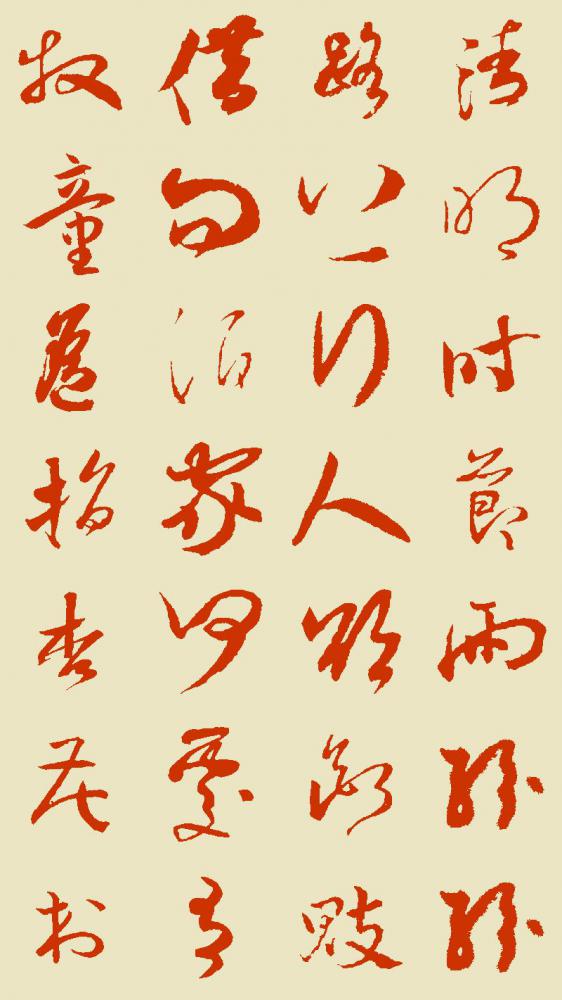 清明时節雨紛紛
路上行人欲断魂
借问酒家何處有
牧童遥指杏花村